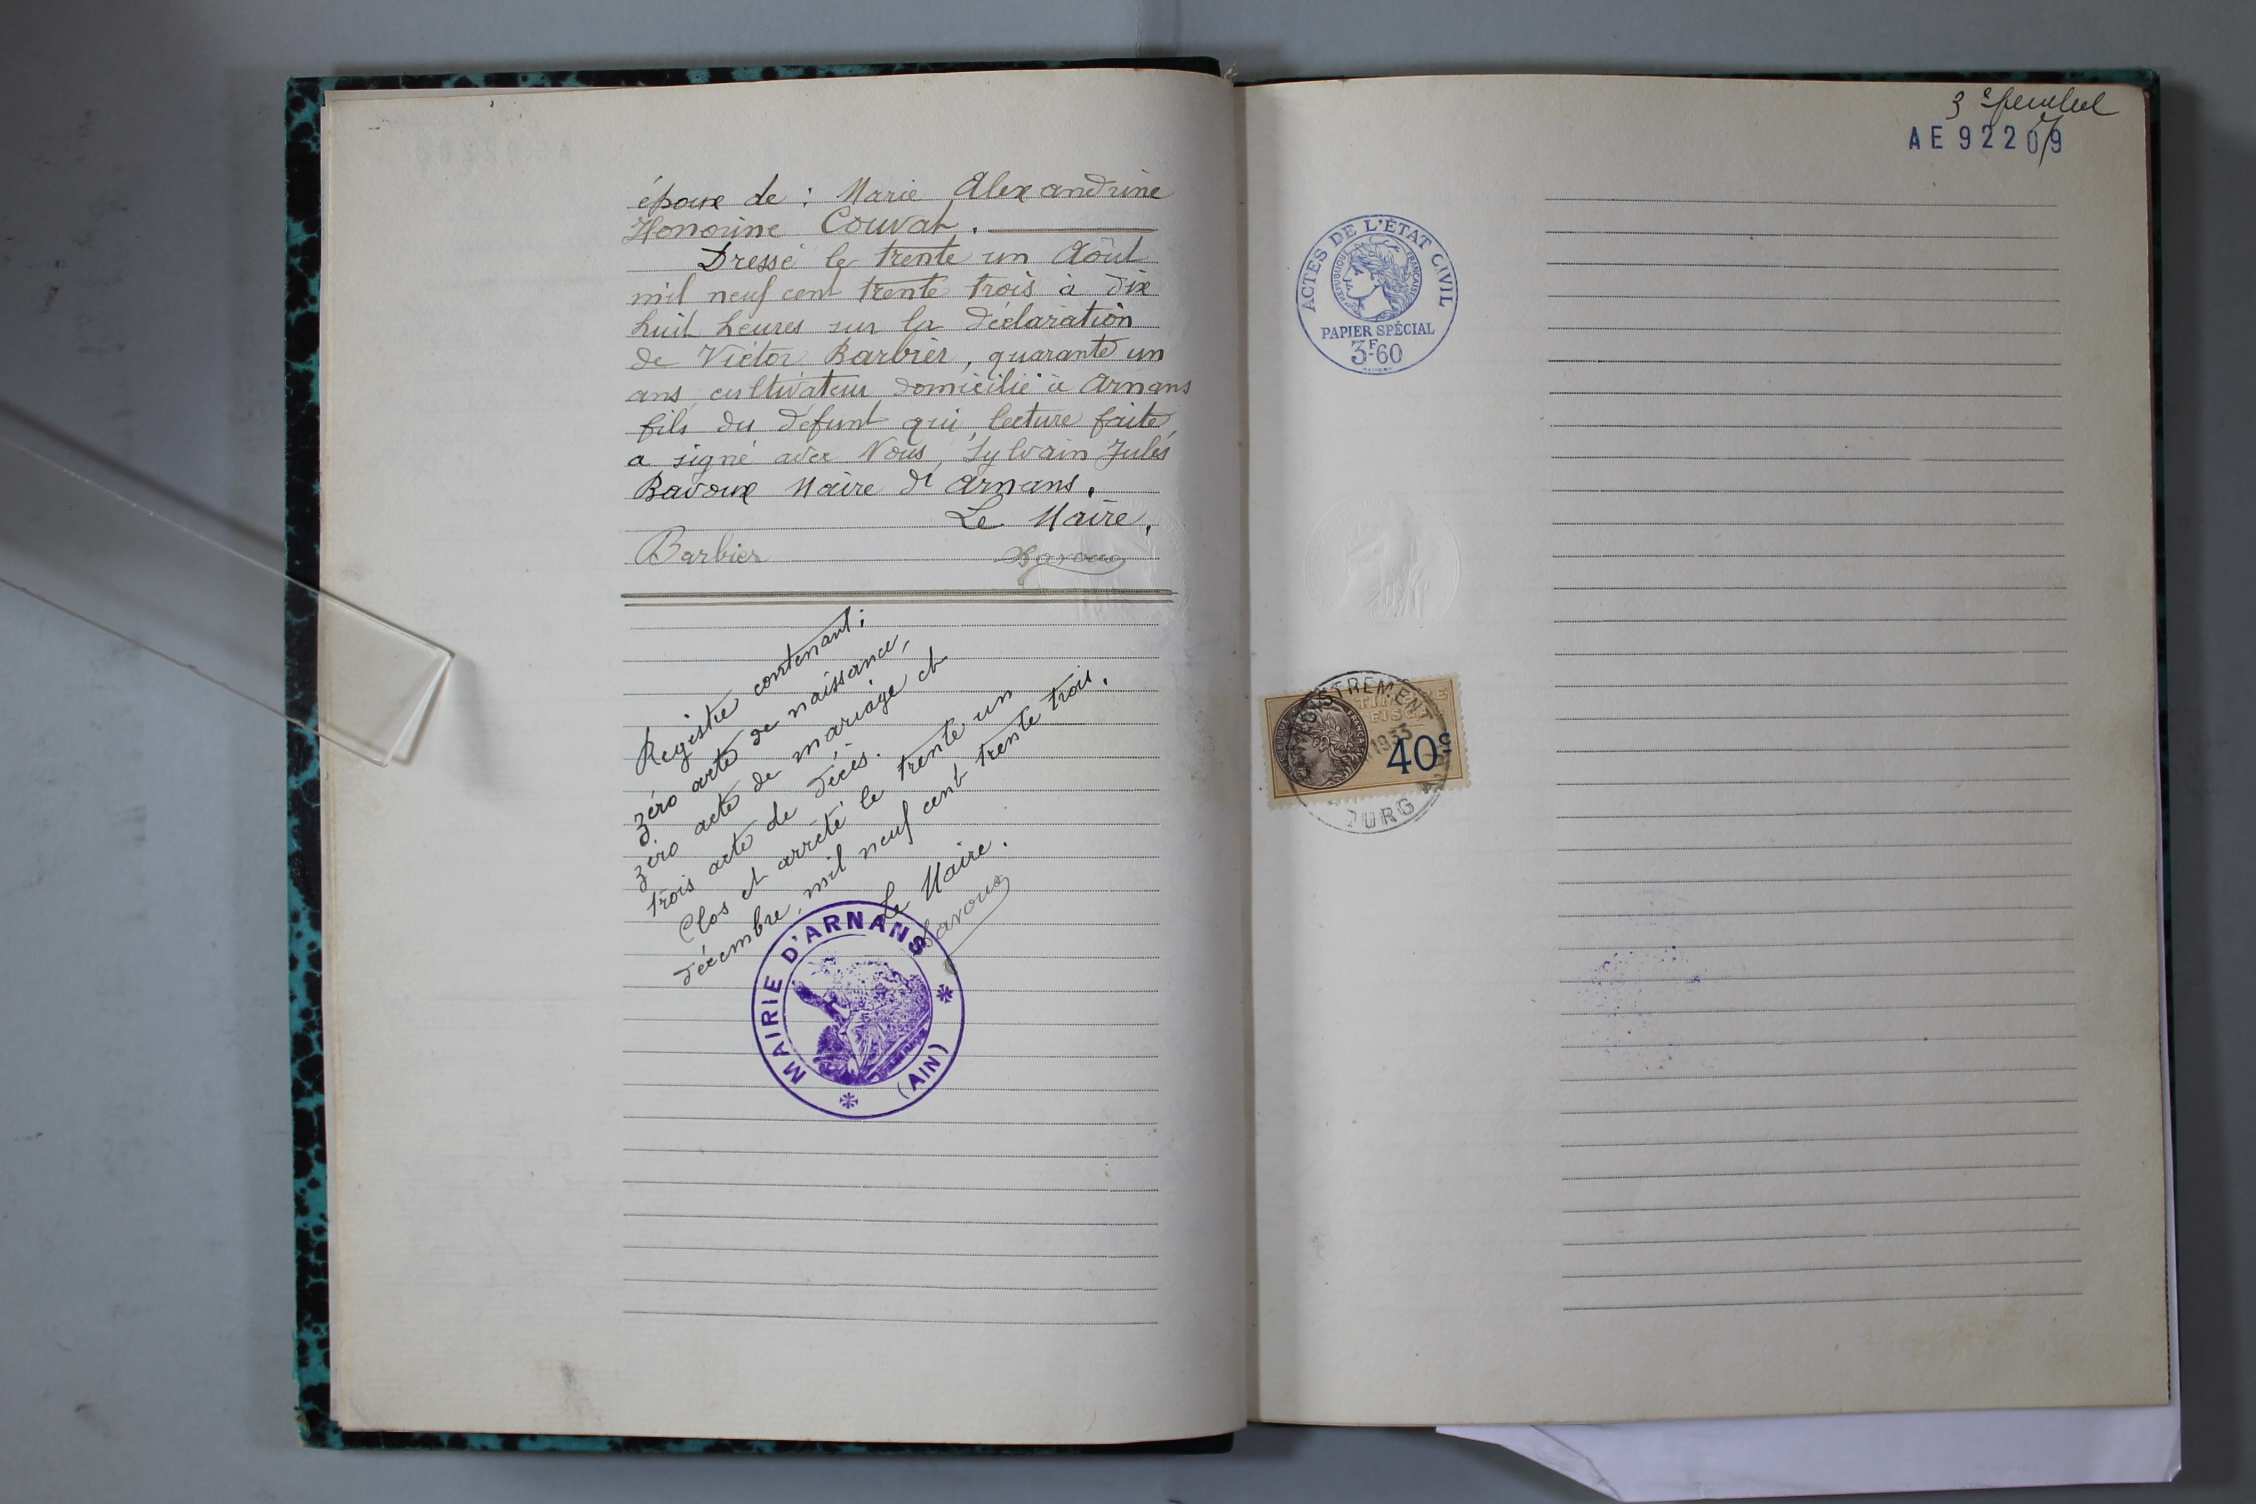 époux de : Marie Alexandrine
Honorine Couvat.
Dressé le trente un Août
mil neuf cent trente trois à dix
huit heures sur la déclaration
de Victor Barbier, quarante un
ans, cultivateur domicilié à Arnans
fils du défunt qui, lecture faite,
a signé avec Nous, Sylvain Jules
Bavoux Maire d'Arnans.
Le Maire,
Barbier Bavoux
Registre contenant :
zéro acte de naissance,
zéro acte de mariage et
trois acte de décès.
Clos et arrêté le trente un
décembre, mil neuf cent trente trois.
Le Maire.
Bavoux
MAIRIE D'ARNANS
(AIN)
3
AE 92209
ACTES DE L'ÉTAT CIVIL
RÉPUBLIQUE FRANÇAISE
PAPIER SPÉCIAL
3F.60
1933
40c